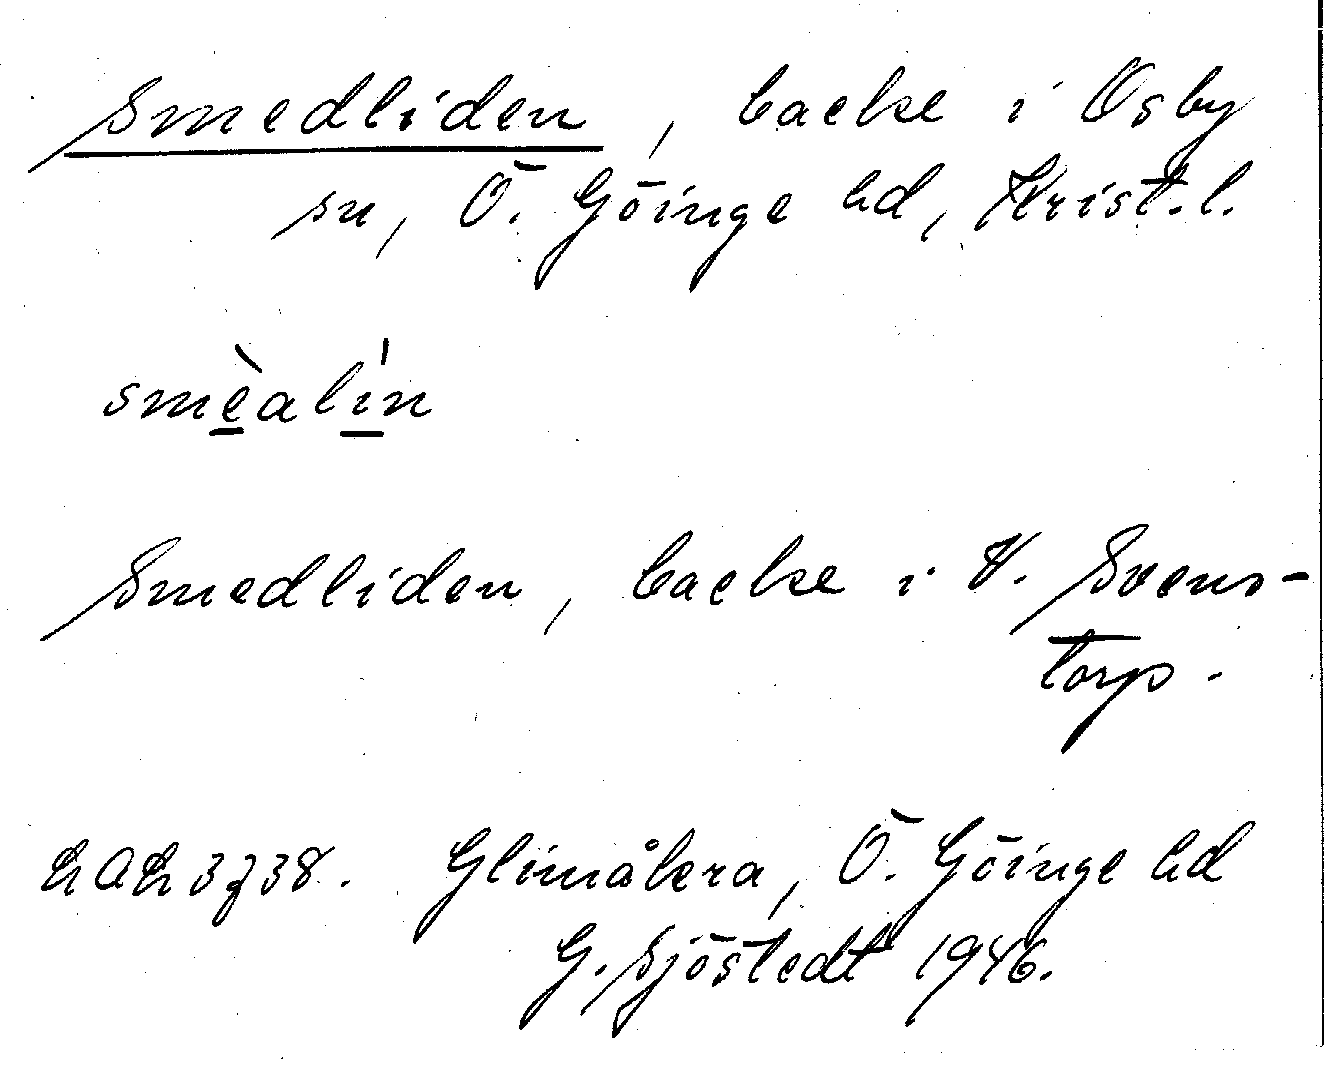 Smedliden, backe i Osby
sn, Ö. Göinge hd, Krist.l.
smèalín
Smedliden, backe i V. Svens-
torp.
LAL 3738. Glimåkra, Ö. Göinge hd
G. Sjöstedt 1946.